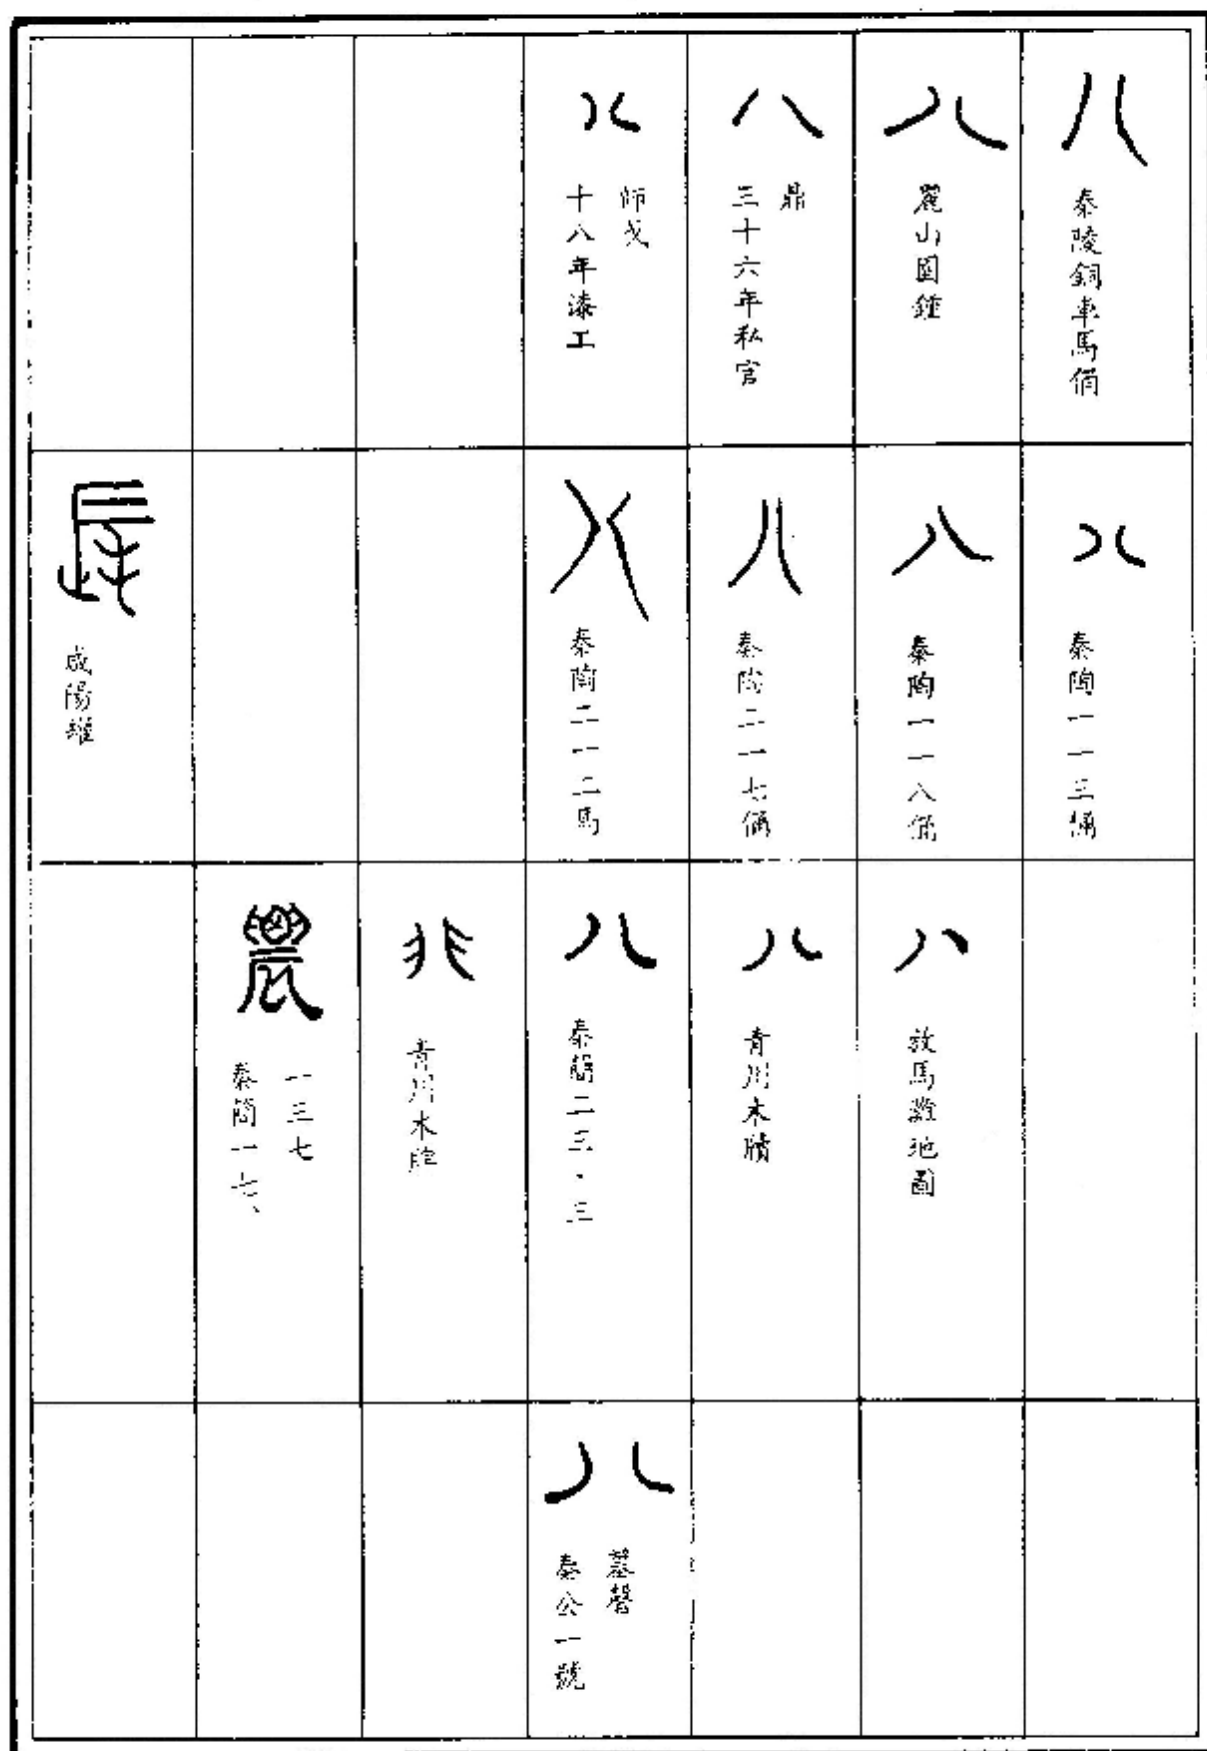 八
秦陵銅車馬俑
八
麗山園鍾
八
三十六年私官
鼎
八
十八年漆工
師戈
八
秦陶一一三俑
八
秦陶一一八俑
八
秦陶二一七俑
八
秦陶二一二馬
咸陽罐
八
放馬灘地圖
八
青川木牘
八
秦簡二三·三
非
青川木牘
農
秦簡一七、
一三七
八
秦公一號
墓磬